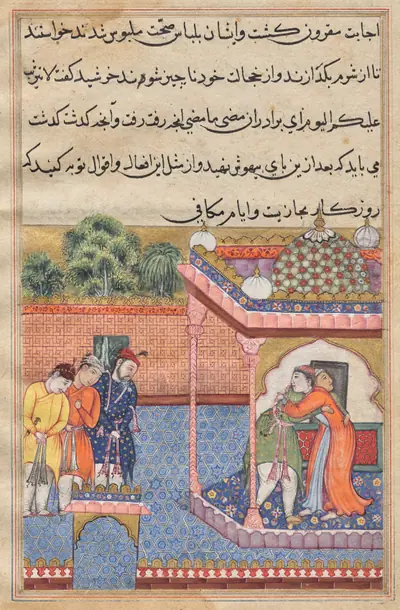 اجابت مقرون گشت و ایشان بلباس صحت ملبوس شدند خواستند
تا از شرم بگدازند و از خجالت خود ناچیز شوند خورشید گفت لا تثریب
علیکم الیوم ای برادران مضی ما مضی انچه رفت رفت و آنچه گذشت گذشت
می باید که بعد ازین پای بهوش نهید و از مثل این افعال و اقوال توبه کنید که
روزگار مجازیت و ایام مکافی